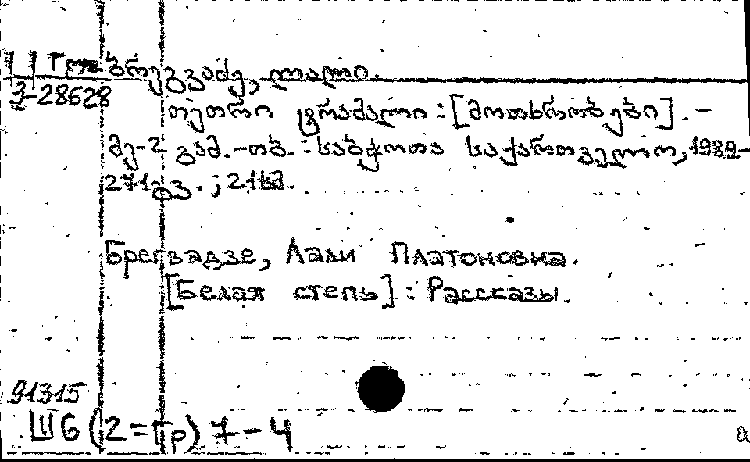 Ц Груз
3-28628
ბრეგვაძე, ლალი.
თეთრი ტრამალი : [მოთხრობები]. —
მე-2 გამ. — თბ. : საბჭოთა საქართველო, 1989—
271 გვ. ; 21 სმ.
Брегвадзе, Лали Платоновна.
[Белая степь] : Рассказы.
91315
Ш6(2=Гр)7-4